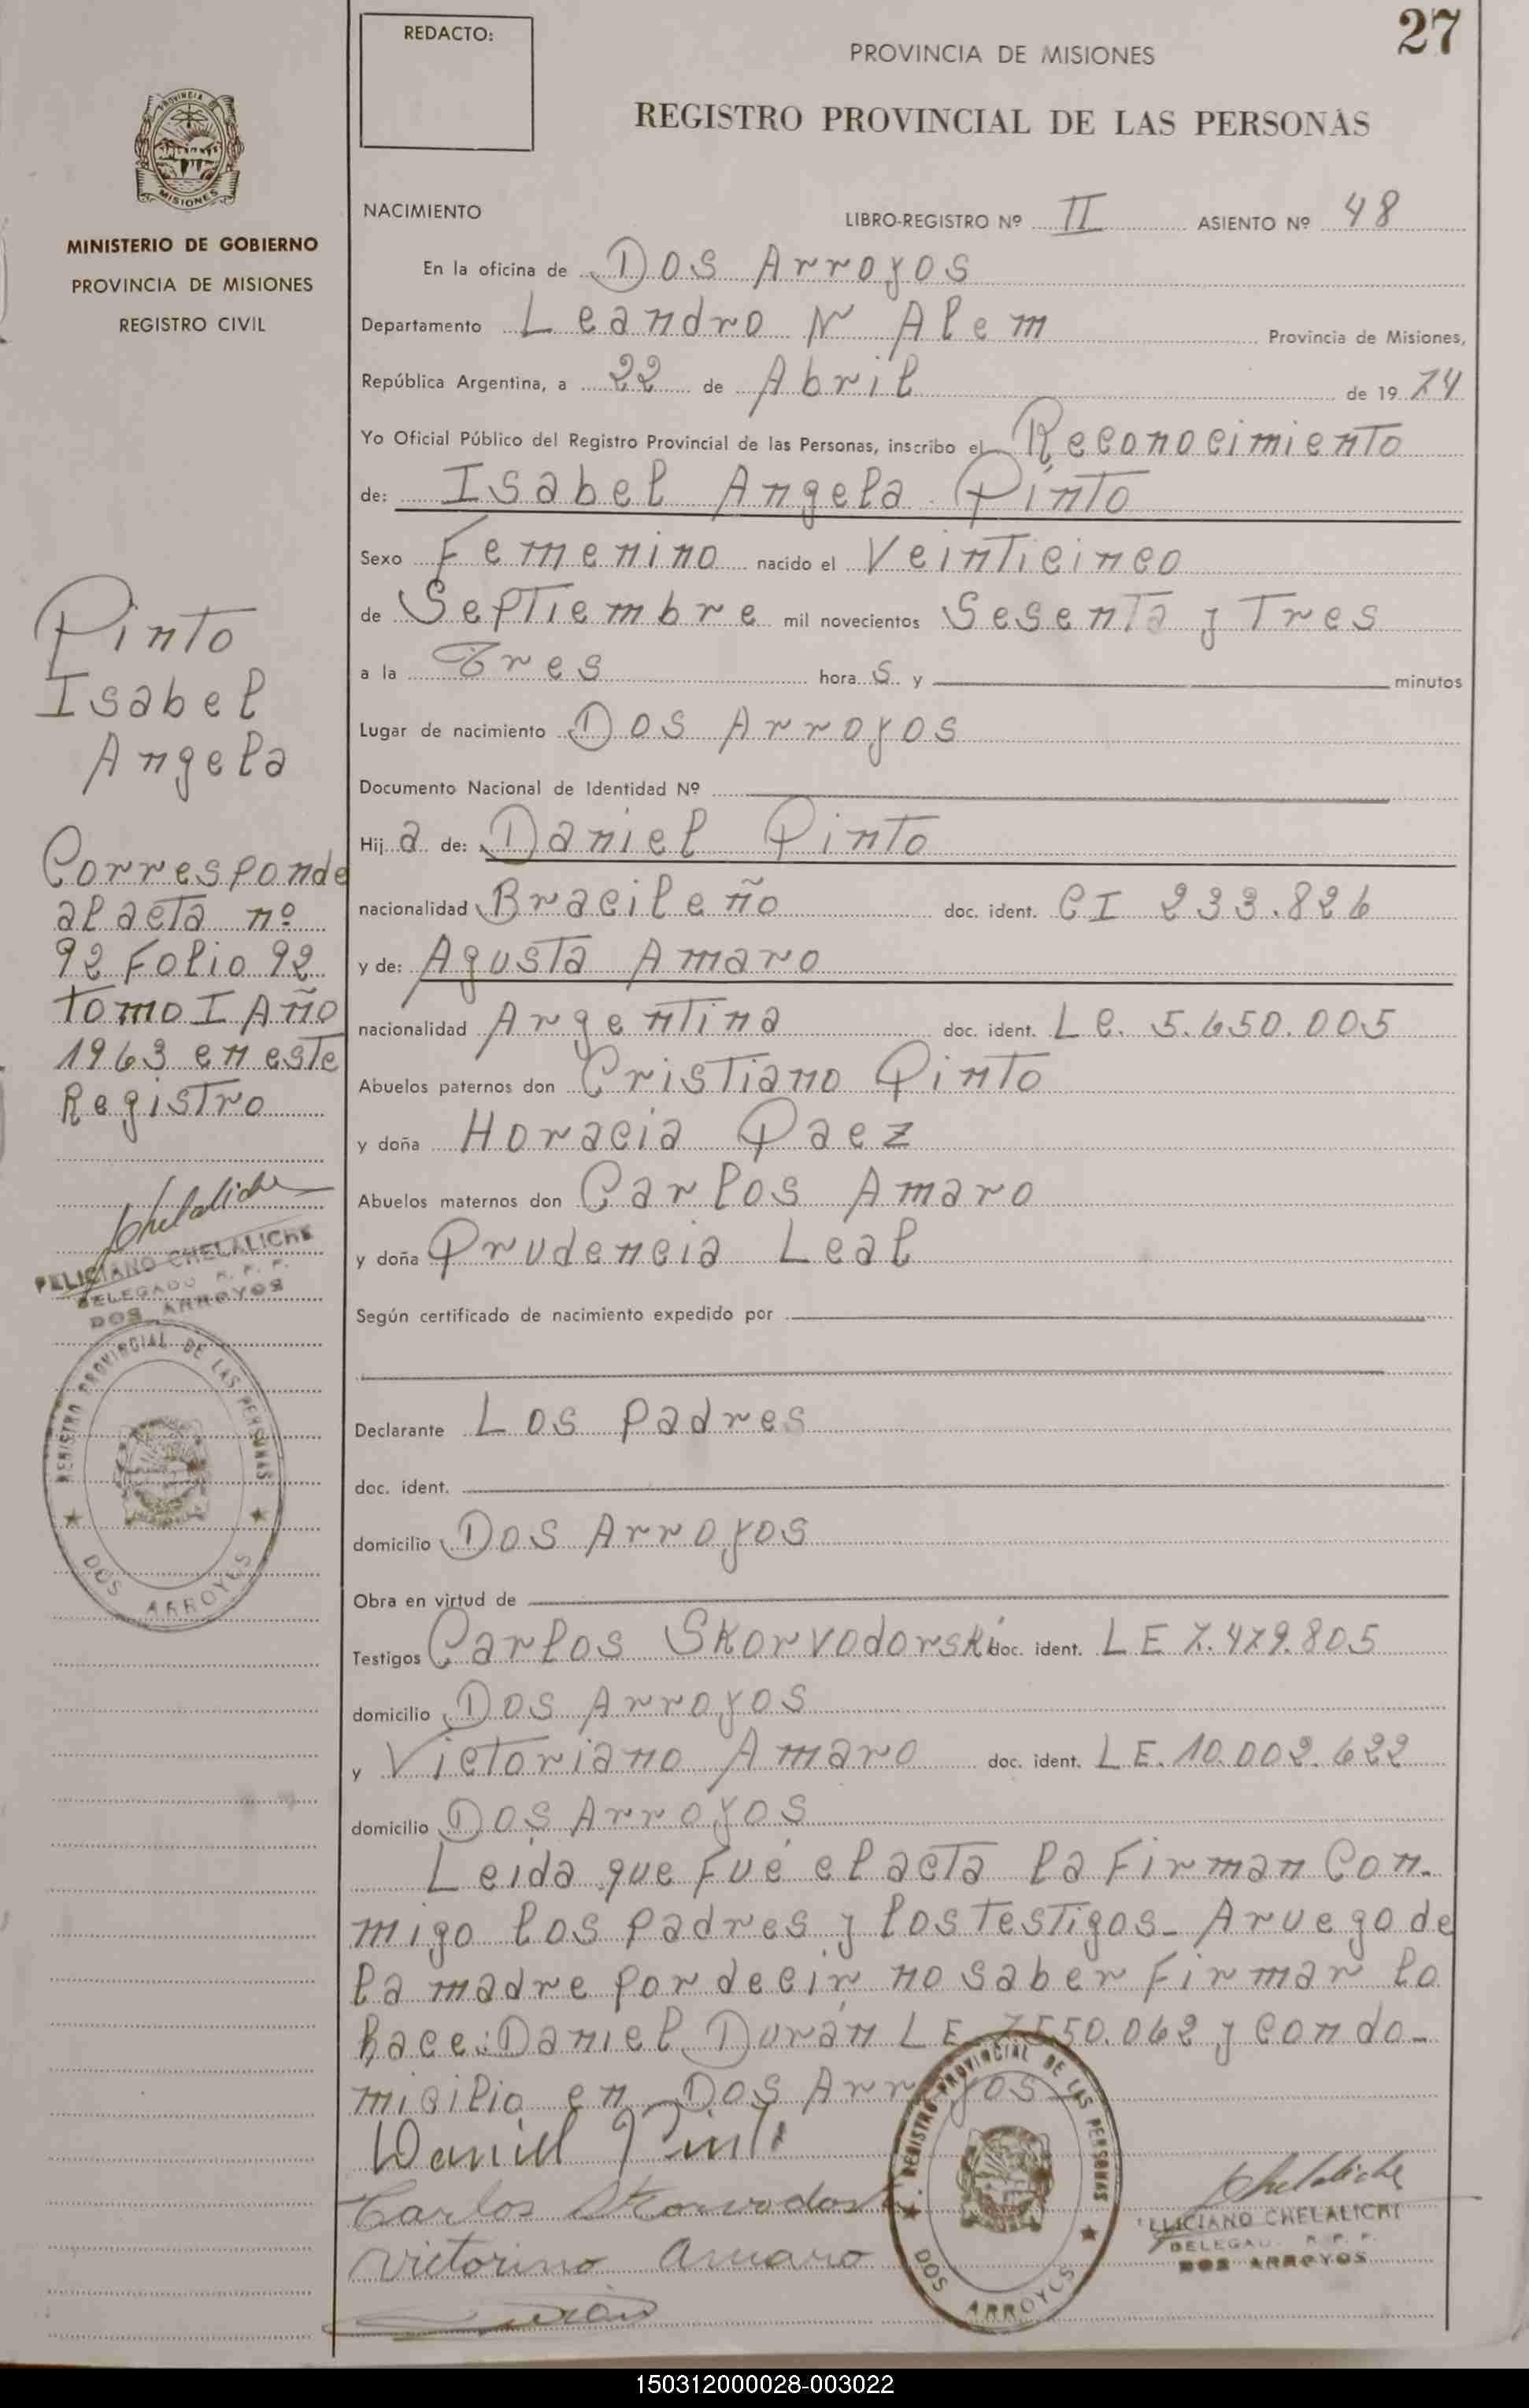 27
REDACTO:
PROVINCIA DE MISIONES
REGISTRO PROVINCIAL DE LAS PERSONAS
PROVINCIA DE
MISIONES
MINISTERIO DE GOBIERNO
PROVINCIA DE MISIONES
REGISTRO CIVIL
NACIMIENTO
LIBRO-REGISTRO Nº II ASIENTO Nº 48
En la oficina de Dos Arroyos
Departamento Leandro N Alem Provincia de Misiones,
República Argentina, a 22 de Abril de 19 74
Yo Oficial Público del Registro Provincial de las Personas, inscribo el Reconocimiento
de: Isabel Angela Pinto
Sexo Femenino nacido el Veinticinco
de Septiembre mil novecientos Sesenta y Tres
a la Tres hora s y minutos
Lugar de nacimiento Dos Arroyos
Documento Nacional de Identidad Nº
Hij a de: Daniel Pinto
nacionalidad Bracileño doc. ident. CI 233.826
y de: Agusta Amaro
nacionalidad Argentina doc. ident. Lc. 5.650.005
Abuelos paternos don Cristiano Pinto
y doña Horacia Paez
Abuelos maternos don Carlos Amaro
y doña Prudencia Leal
Según certificado de nacimiento expedido por
Declarante Los Padres
doc. ident.
domicilio Dos Arroyos
Obra en virtud de
Testigos Carlos Skorvodorski doc. ident. LE 7.479.805
domicilio Dos Arroyos
y Victoriano Amaro doc. ident. LE. 10.002.622
domicilio Dos Arroyos
Leida que fué el acta la firman con-
migo los padres y los testigos- A ruego de
la madre por decir no saber firmar lo
hace: Daniel Durán LE 7.550.062 y con do-
micilio en Dos Arroyos
Daniel Pinto
Carlos
Victorino Amaro
Durán
Chelaliche
FELICIANO CHELALICHE
DELEGADO R. P. P.
DOS ARROYOS
REGISTRO PROVINCIAL DE LAS PERSONAS
DOS ARROYOS
Pinto
Isabel
Angela
Corresponde
al acta nº
92 Folio 92
Tomo I Año
1963 en este
Registro
Chelaliche
FELICIANO CHELALICHE
DELEGADO R. P. P.
DOS ARROYOS
REGISTRO PROVINCIAL DE LAS PERSONAS
DOS ARROYOS
150312000028-003022